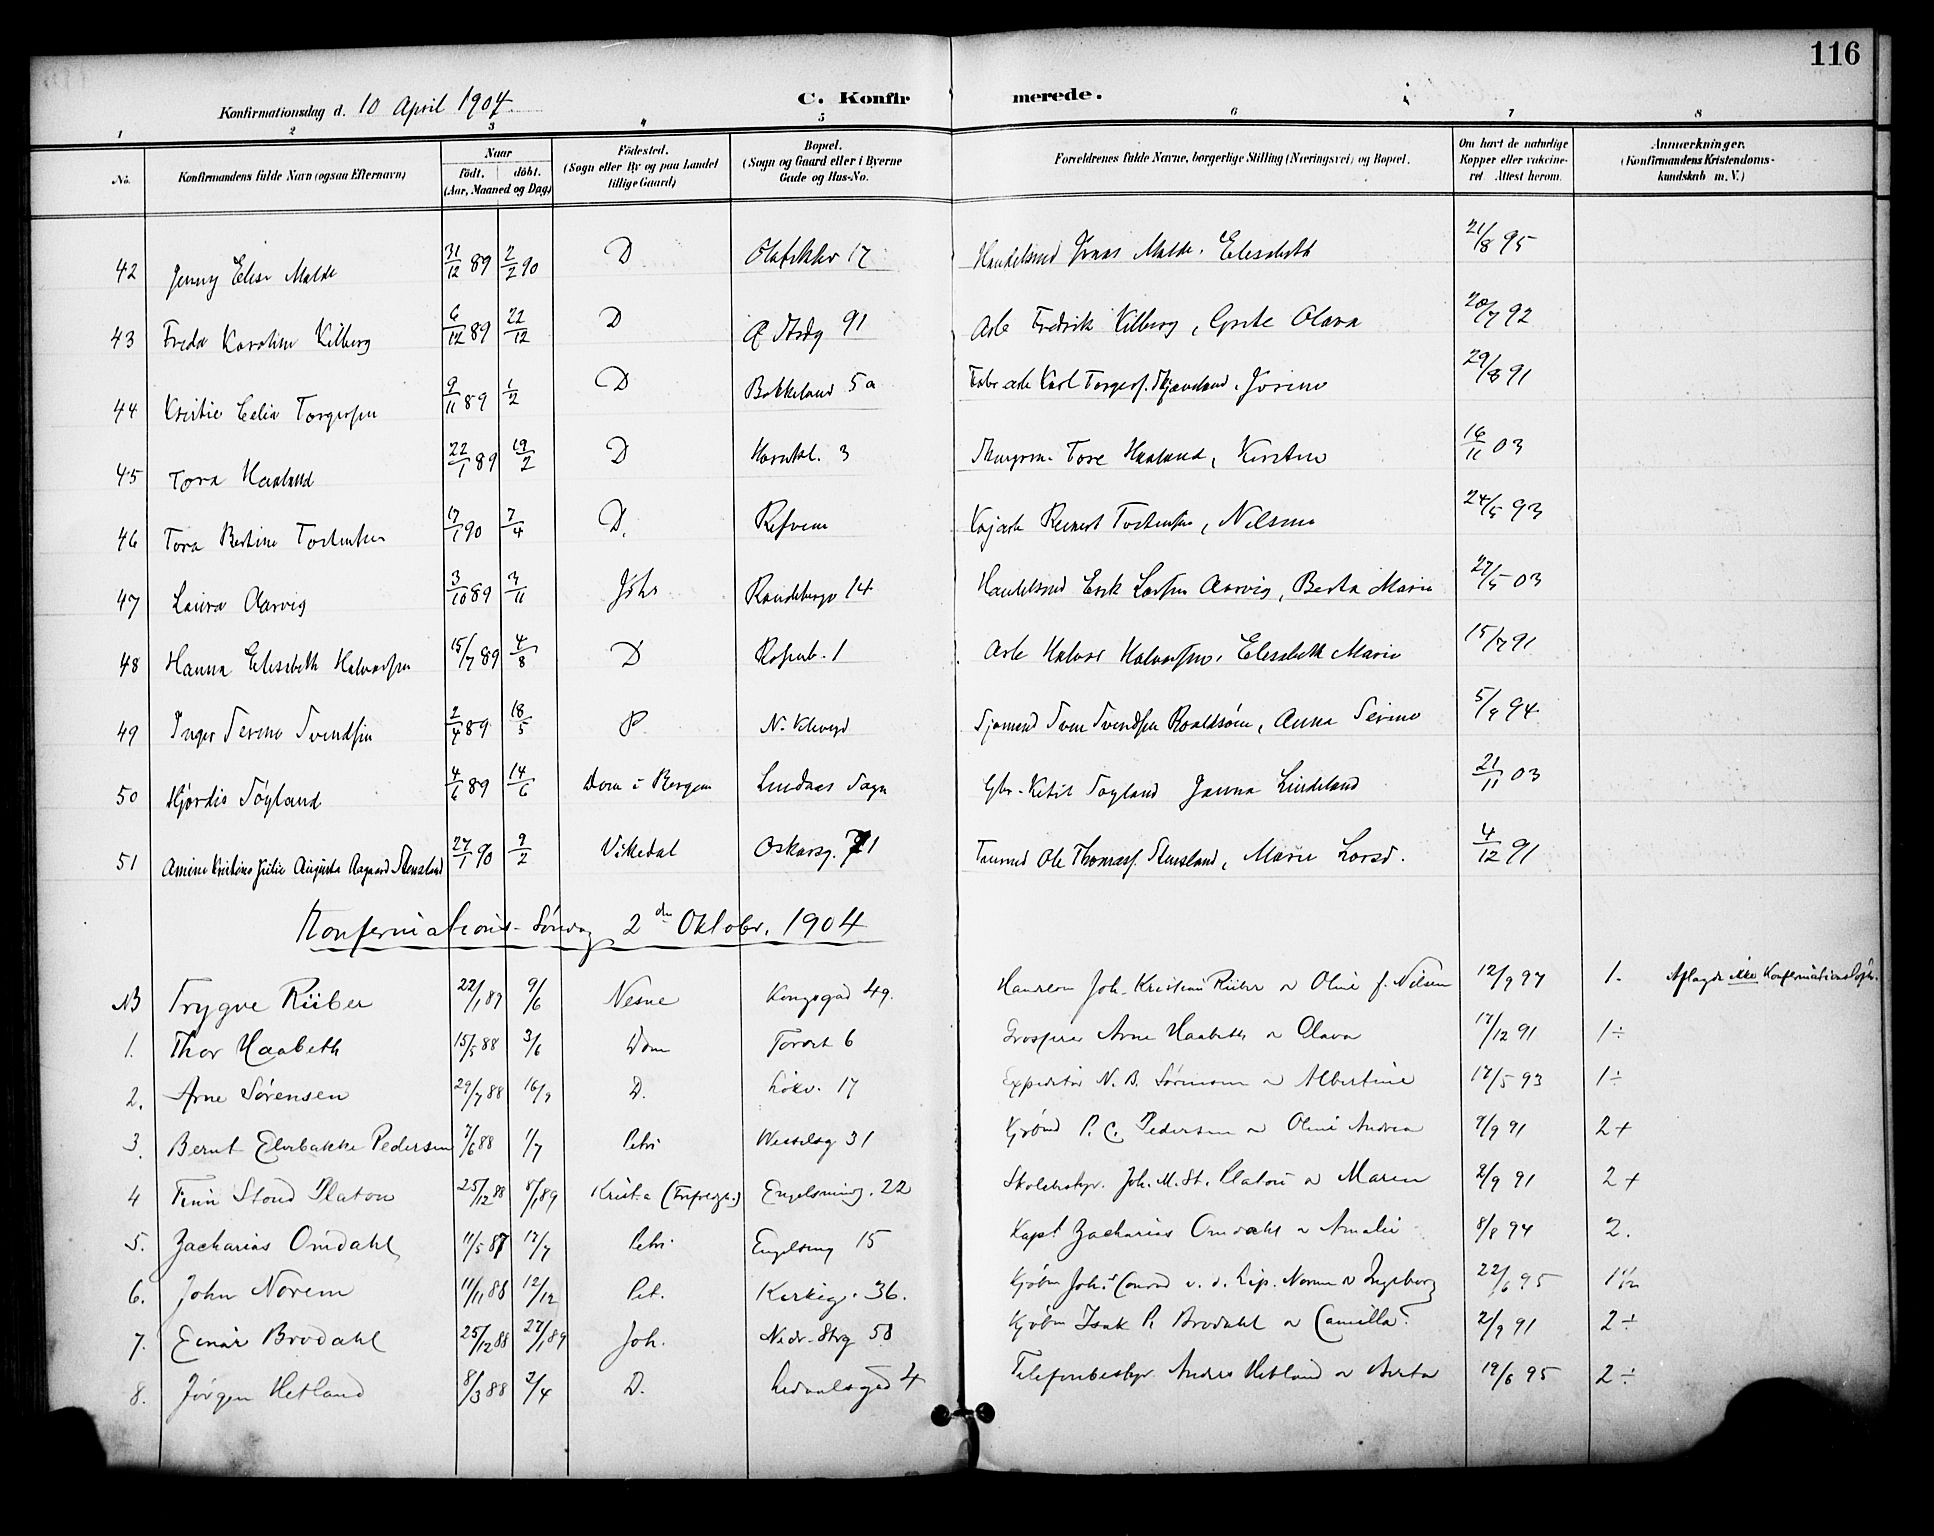 116
Konfirmationsdag d. 10 April 1904.
C. Konfirmerede.
1 2 3 4 5 6 7 8
No. Konfirmandens fulde Navn (ogsaa Efternavn) Naar født. døbt. (Aar, Maaned og Dag) Fødested. (Sogn eller By og paa Landet tillige Gaard) Bopæl. (Sogn og Gaard eller i Byerne Gade og Hus-No. Forældrenes fulde Navne, borgerlige Stilling (Næringsvei) og Bopæl. Om havt de naturlige Kopper eller vakcineret. Attest herom. Anmærkninger. (Konfirmandens Kristendomskundskab m. V.)
42 Jenny Elise Malde 31/12 89 2/2 90 D 17 Handelsmd Jonas Malde. Elisabeth 21/8 95
43 Freda Karoline Kilberg 6/12 89 22/12 D 91 Arb Fredrik Kilberg, Grete Olava 20/7 92
44 Celia Torgersen 9/11 89 1/2 D Bakkeland 5a Karl Torgers. 29/8 91
45 Tora Haaland 22/1 89 19/2 D 3 Tore Haaland, Kirstine 16/11 03
46 Tora Bertine Tostensen 17/1 90 7/4 D. Refveim Tostensen, Nilsine 24/5 93
47 Laura Aarvig 3/10 89 3/11 Johs Randebergv 14 Handelsmd Erik Larsen Aarvig, Berta Marie 27/5 03
48 Hanna Elisabeth Halvorsen 15/7 89 4/8 D Rosenb. 1 Arb Halvor Halvorsen, Elisabeth Marie 15/7 91
49 Inger Serine Svendsen 2/4 89 18/5 P. Sjømand Sven Svendsen, Anna Serine 5/9 94
50 Hjørdis Søyland 4/6 89 14/6 Dom i Bergen Lindaas Sogn Gbr. Ketil Søyland Janna Lindeland 21/11 03
51 Amine Kristine Julie Augusta Aagaard Stensland 27/1 90 9/2 Vikedal Oskarsg. 71 Ole Thomass. Stensland, Marie Larsd. 4/12 91
Konfirmations-Søndag 2den Oktober. 1904
NB Trygve Rüber 22/1 89 9/6 Nesne Kongsgad 49. Joh. Kristian Rüber o Oline f. Nilsen 12/9 97 1. Aflagde ikke Konfirmationsløfte.
1. Thor Haabeth 15/5 88 3/6 Dom Torvet 6 Grosserer Arne Haabeth o Olava 17/12 91 1÷
2. Arne Sørensen 29/7 88 16/9 D. Løkv. 17 Expeditør N. B. Sørensen o Albertine 17/5 93 1÷
3. Bernt Elvebakke Pedersen 7/6 88 1/7 Petri Wesselsg 31 Kjøbmd P. C. Pedersen o Oline Andrea 9/9 91 2+
4 Finn Stoud Platou 25/12 88 8/1 89 Krist.a Engelsming. 22 Skolebstyr. Joh. M. St. Platou o Maren 2/9 91 2+
5. Zacharias Omdahl 11/5 87 17/7 Petri Engelsmg 15 Kapt Zacharias Omdahl o Amalie 8/8 94 2.
6. John Norem 11/11 88 12/12 Pet. Kirkeg. 36. Norem o Ingeborg 22/6 95 1½
7. Einar Brodahl 25/12 88 27/1 89 Joh. Nedr. Strg 58 Kjøbm Isak P. Brodahl o Camilla 2/9 91 2÷
8. Jørgen Hetland 8/3 88 2/4 D. Ledaalsgad 4 Telefonbestyr Anders Hetland o Berta 19/6 95 2÷